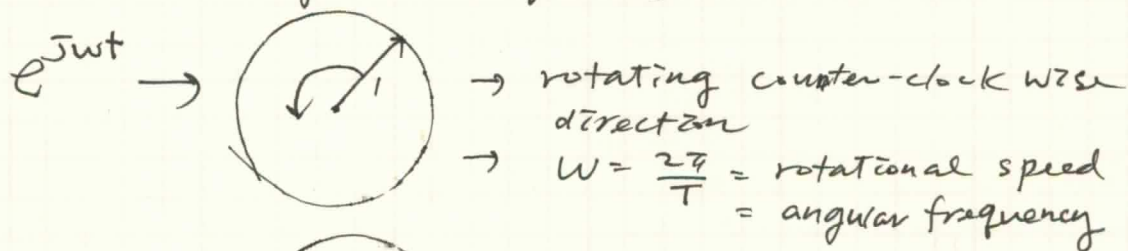 e^jωt → 1 → rotating counter-clock wise
direction
→ ω = 2π/T = rotational speed
= angular frequency